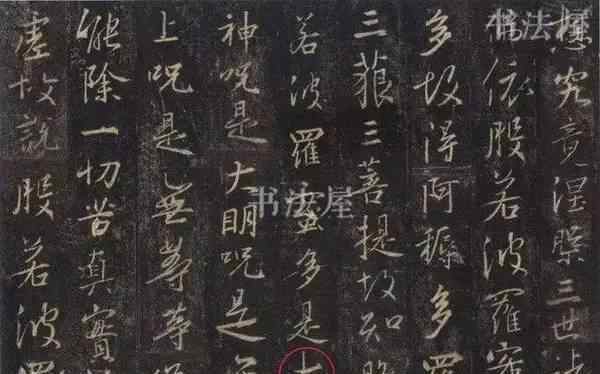 想究竟涅槃三世諸
佛依般若波羅蜜
多故得阿耨多羅
三藐三菩提故知般
若波羅蜜多是大
神咒是大明咒是無
上咒是無等等
能除一切苦真實
虛故說般若波羅
书法屋
书法屋